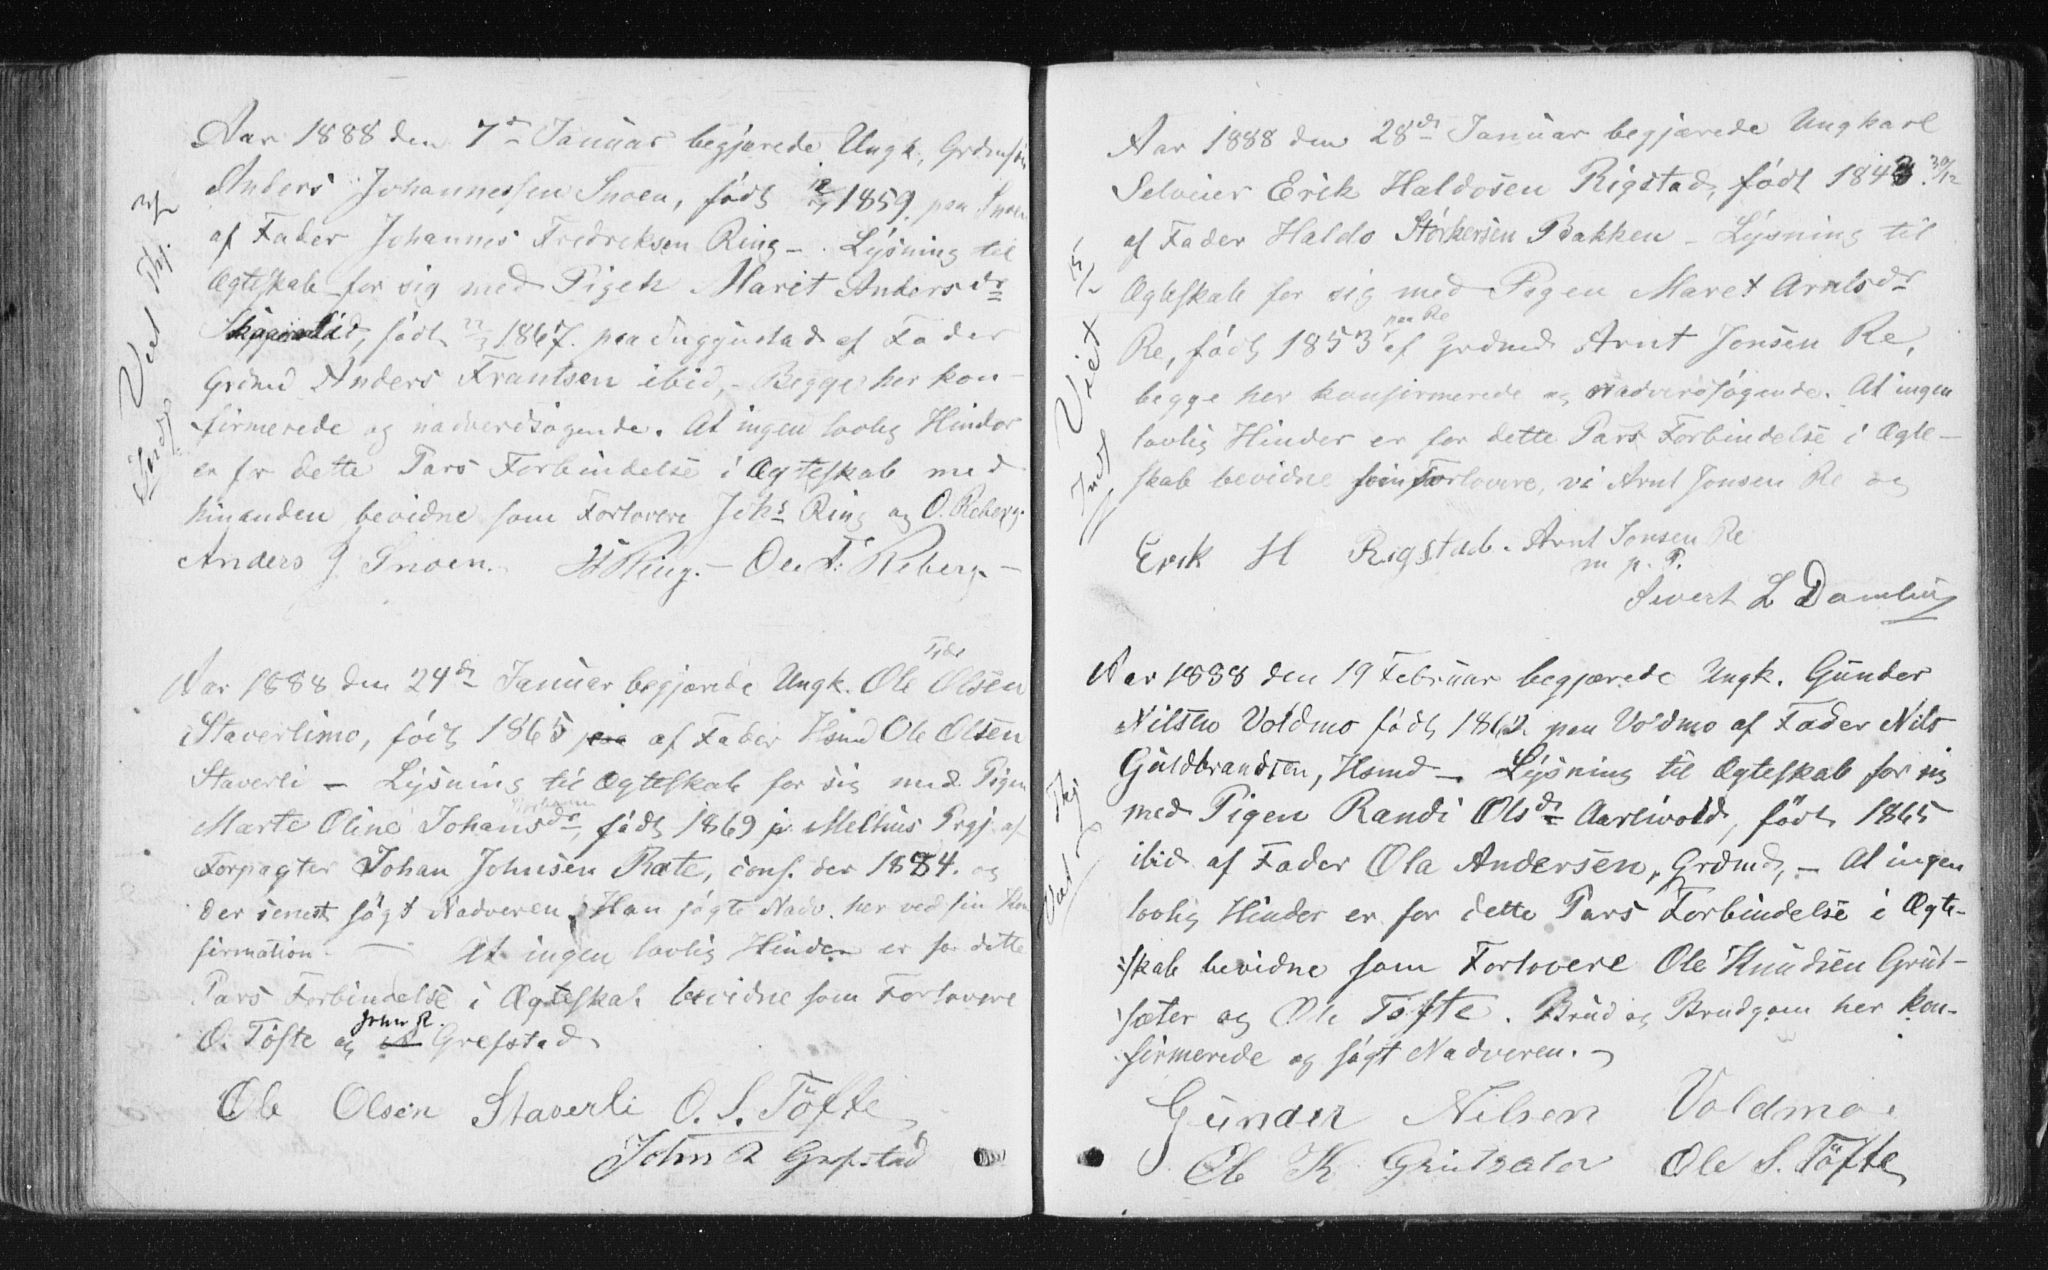 Aar 1888 den 7de Januar begjærede Ungk. Grdmsøn
Anders Johannessen Snoen, født 1859 paa Snoen
af Fader Johannes Fredriksen Ring - Lysning til
Ægteskab for sig med Pigen Marit Andersdr
født 1867 paa Ingjustad af Fader
Grdmd Anders Frantsen ibid, - Begge her kon-
firmerede og nadverdsøgende. At ingen lovlig Hinder
er for dette Pars Forbindelse i Ægteskab med
hinanden bevidne som Forlovere Johs Ring og O. Reberg.
Anders J Snoen. Ring. - Ole T. Reberg. -
Aar 1888 den 24de Januar begjærede Ungk. Ole Olsen
Staverlimo, født 1865 paa af Fader Hsmd Ole Olsen
Staverli - Lysning til Ægteskab for sig med Pigen
Marte Oline Johansdr, født 1869 i Melhus Prgj. af
Forpagter Johan Johnsen Rate, conf. der 1884. og
der senest søgt Nadveren. Han søgte Nadv. her ved sin Kon
firmation. - At ingen lovlig Hinder er for dette
Pars Forbindelse i Ægteskab bevidne som Forlovere
O. Töfte og John R. Grefstad
Ole Olsen Staverli O. S. Töfte
John R Grefstad
Aar 1888 den 28de Januar begjærede Ungkarl
Selveier Erik Haldosen Rigstad, født 1843 30/12
af Fader Haldo Størkersen Bakken - Lysning til
Ægteskab for sig med Pigen Maret Arntsdr
paa Re
Re, født 1853 af Grdmd Arnt Jonsen Re,
begge her konfirmerede og nadverdsøgende. At ingen
lovlig Hinder er for dette Pars Forbindelse i Ægte-
skab bevidne som Forlovere, vi Arnt Jonsen Re og
Erik H Rigstad. Arnt Jonsen Re
m. p. P.
Sivert L Damlien
Aar 1888 den 19 Februar begjærede Ungk. Gunder
Nilsen Voldmo født paa Voldmo af Fader Nils
Guldbrandsen, Hsmd - Lysning til Ægteskab for sig
med Pigen Randi Olsdr Aarlivold, født 1865
ibid af Fader Ola Andersen, Grdmd, - At ingen
lovlig Hinder er for dette Pars Forbindelse i Ægte-
skab bevidne som Forlovere Ole Knudsen Grut-
sæter og Ole Töfte. Brud og Brudgom her kon-
firmerede og søgt Nadveren. -
Gunder Nilsen Voldmo.
Ole K Grutsæter Ole S. Töfte